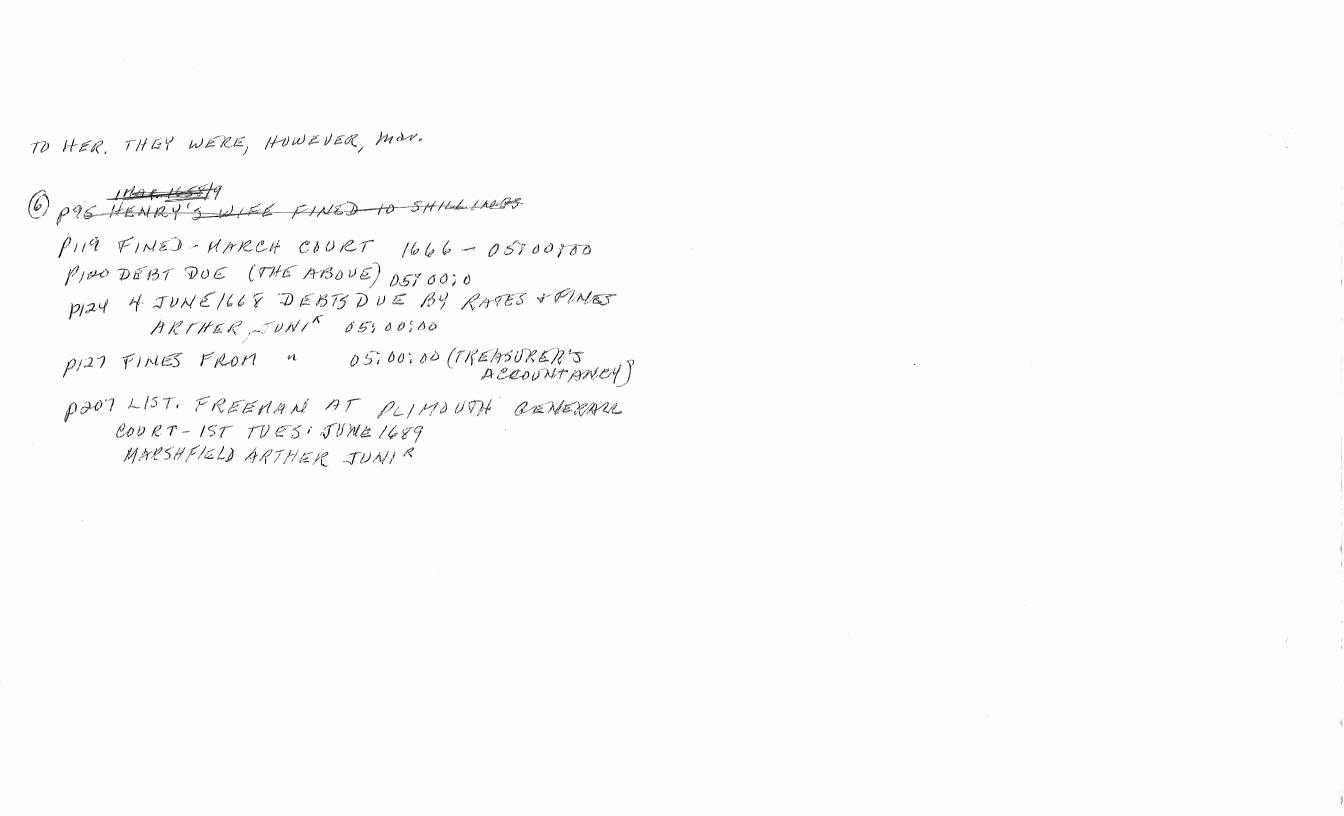 TO HER. THEY WERE, HOWEVER, mar.
1 MAR. 1658/9
⑥ p95 HENRY'S WIFE FINED 10 SHILLINGS
p119 FINED - MARCH COURT 1666 - 05:00:00
p120 DEBT DUE (THE ABOVE) 05:00:0
p124 4 JUNE 1668 DEBTS DUE BY RATES & FINES
ARTHER JUNIR 05:00:00
p127 FINES FROM " 05:00:00 (TREASURER'S
ACCOUNTANCY)
p207 LIST. FREEMAN AT PLIMOUTH GENERALL
COURT - 1ST TUES: JUNE 1689
MARSHFIELD ARTHER JUNIR